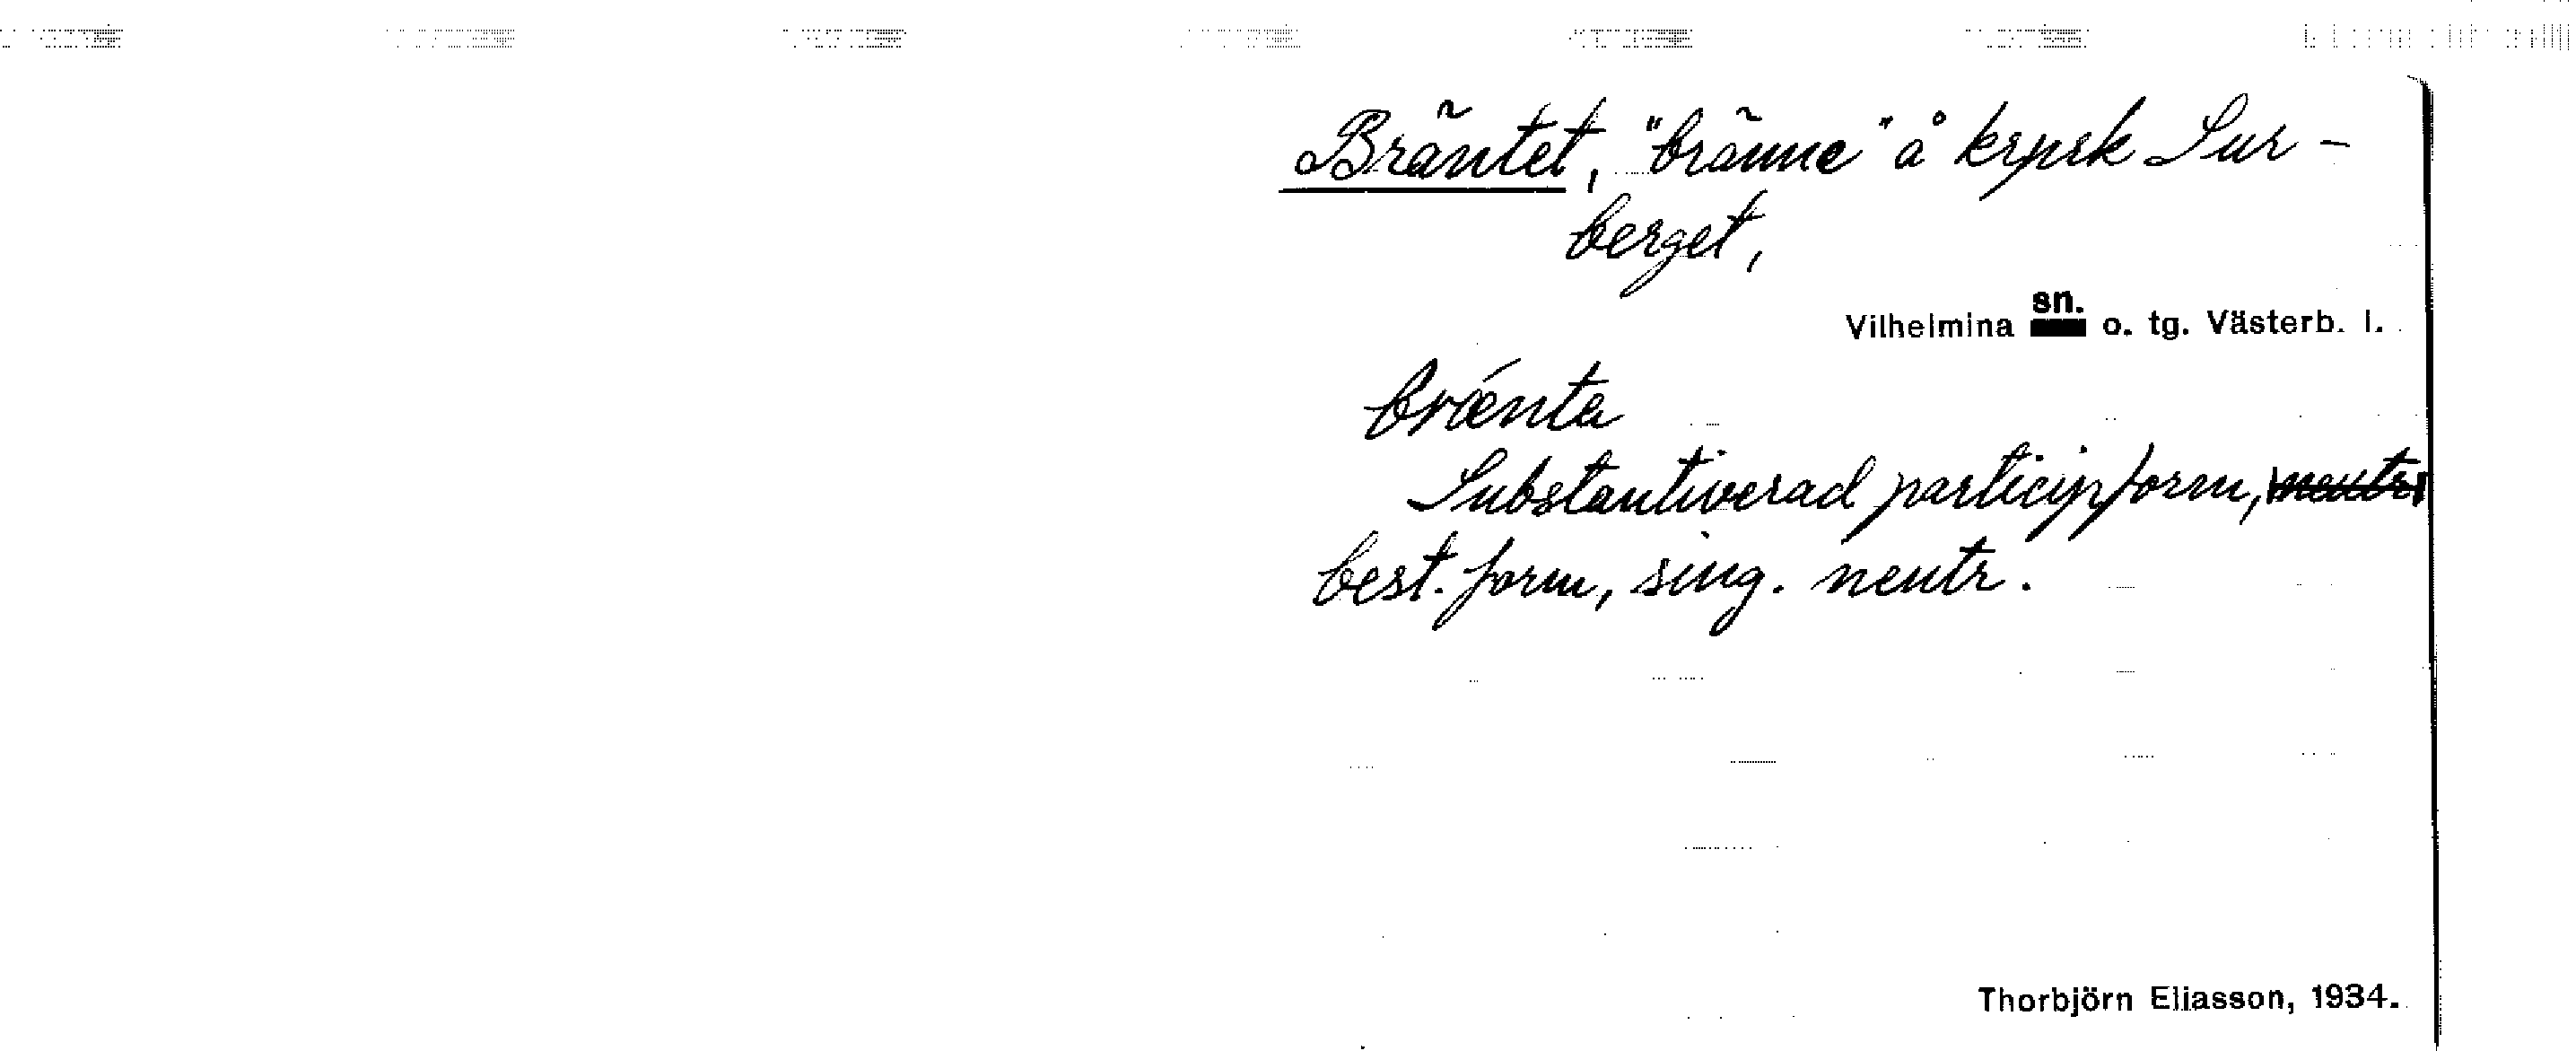 Bräntet, "bränne" å krpsk Sur-
berget,
Vilhelmina sn. o. tg. Västerb. l.
brǽnta
Substantiverad participform, neutr
best. form, sing. neutr.
Thorbjörn Eliasson, 1934.